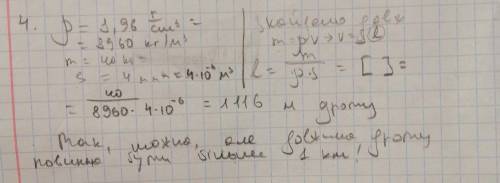 4. ρ = 8,96 г/cm³ =
= 8960 кг/м³
m = 40 кг
s = 4 мм = 4·10⁻⁶ м³
Знайдемо довж
m = ρ·v → v = S l
l = m / ρ·s = [ ] =
= 40 / 8960·4·10⁻⁶ = 1116 м дроту
Так, можна, але довжина дроту
повинна бути більше 1 км!